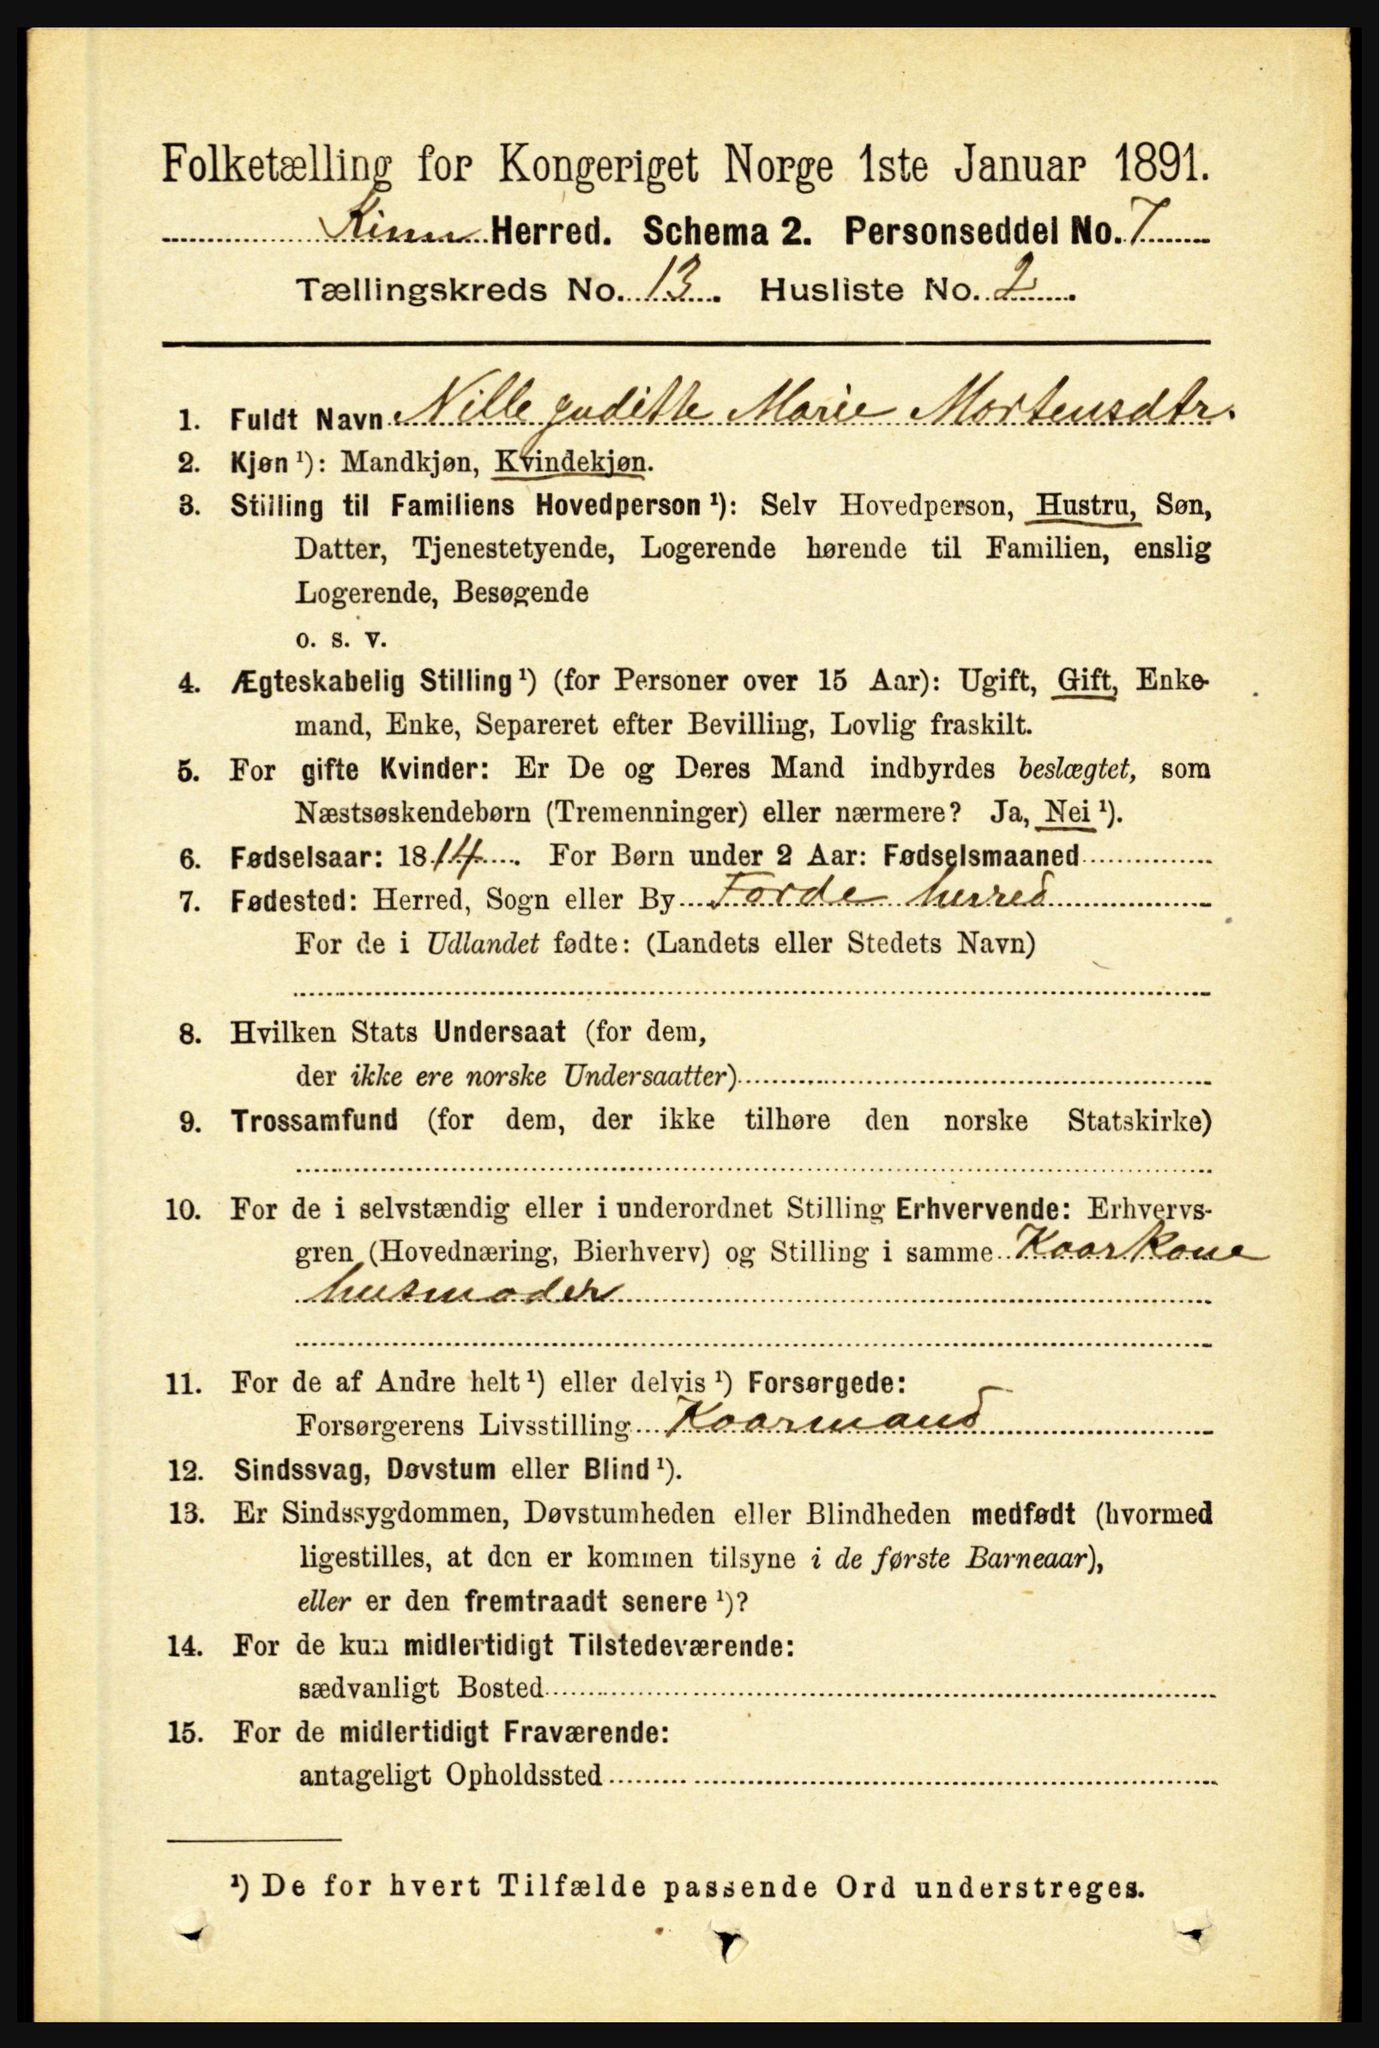 Folketælling for Kongeriget Norge 1ste Januar 1891.
Kinn Herred. Schema 2. Personseddel No. 7
Tællingskreds No. 13. Husliste No. 2.
1. Fuldt Navn Nille Juditte Marie Mortensdtr.
2. Kjøn ¹): Mandkjøn, Kvindekjøn.
3. Stilling til Familiens Hovedperson ¹): Selv Hovedperson, Hustru, Søn,
Datter, Tjenestetyende, Logerende hørende til Familien, enslig
Logerende, Besøgende
o. s. v.
4. Ægteskabelig Stilling ¹) (for Personer over 15 Aar): Ugift, Gift, Enke-
mand, Enke, Separeret efter Bevilling, Lovlig fraskilt.
5. For gifte Kvinder: Er De og Deres Mand indbyrdes beslægtet, som
Næstsøskendebørn (Tremenninger) eller nærmere? Ja, Nei ¹).
6. Fødselsaar: 1814. For Børn under 2 Aar: Fødselsmaaned
7. Fødested: Herred, Sogn eller By Førde herred
For de i Udlandet fødte: (Landets eller Stedets Navn)
8. Hvilken Stats Undersaat (for dem,
der ikke ere norske Undersaatter)
9. Trossamfund (for dem, der ikke tilhøre den norske Statskirke)
10. For de i selvstændig eller i underordnet Stilling Erhvervende: Erhvervs-
gren (Hovednæring, Bierhverv) og Stilling i samme Kaarkone
husmoder
11. For de af Andre helt ¹) eller delvis ¹) Forsørgede:
Forsørgerens Livsstilling Kaarmand
12. Sindssvag, Døvstum eller Blind ¹).
13. Er Sindssygdommen, Døvstumheden eller Blindheden medfødt (hvormed
ligestilles, at den er kommen tilsyne i de første Barneaar),
eller er den fremtraadt senere ¹)?
14. For de kun midlertidigt Tilstedeværende:
sædvanligt Bosted
15. For de midlertidigt Fraværende:
antageligt Opholdssted
¹) De for hvert Tilfælde passende Ord understreges.